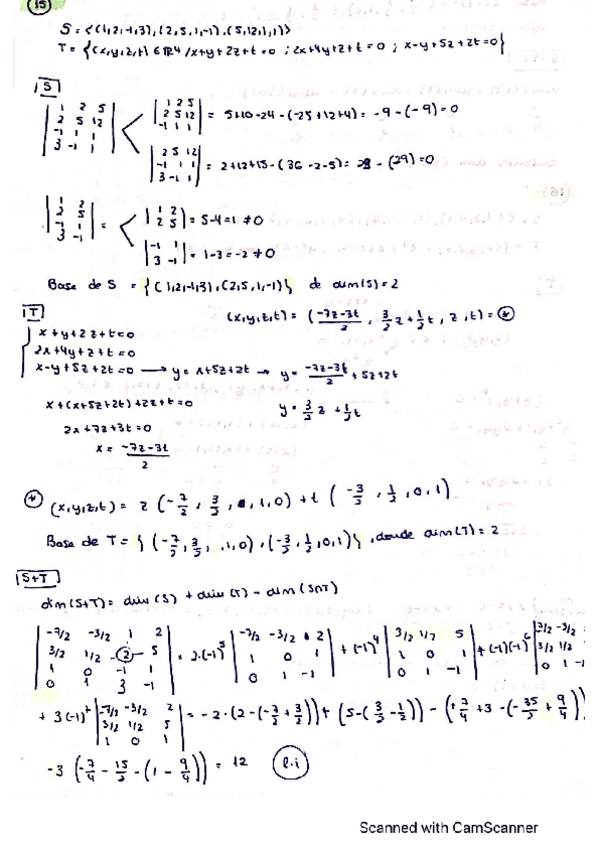 15
S = <(1,2,-1,3),(2,5,1,-1),(5,12,1,1)>
T = {(x,y,z,t) ∈ R4 / x+y+2z+t=0 ; 2x+4y+z+t=0 ; x-y+5z+2t=0}
S
| 1 2 5 | 2 5 12 | -1 1 1 | 3 -1 1 |
| 1 2 5 | 2 5 12 | -1 1 1 | = 5+10-24-(-25+12+4) = -9-(-9)=0
| 2 5 12 | -1 1 1 | 3 -1 1 | = 2+12+15-(36-2-5) = 29-(29)=0
| 1 2 | 2 5 | -1 1 | 3 -1 | =
| 1 2 | 2 5 | = 5-4=1 ≠0
| -1 1 | 3 -1 | = 1-3=-2 ≠0
Base de S = {(1,2,-1,3),(2,5,1,-1)} de dim(S)=2
T
(x,y,z,t) = (-7z-3t/2 , 3/2 z + 1/2 t , z , t) = *
x+y+2z+t=0
2x+4y+z+t=0
x-y+5z+2t=0 → y = x+5z+2t → y = -7z-3t/2 + 5z+2t
x+(x+5z+2t)+2z+t=0
y = 3/2 z + 1/2 t
2x+7z+3t=0
x = -7z-3t/2
* (x,y,z,t) = z (-7/2 , 3/2 , 1,0) + t (-3/2 , 1/2 , 0,1)
Base de T = {(-7/2, 3/2, 1,0),(-3/2, 1/2, 0,1)}, donde dim(T)=2
S+T
dim(S+T) = dim(S) + dim(T) - dim(S∩T)
| -7/2 -3/2 1 2 | 3/2 1/2 2 5 | 1 0 -1 1 | 0 1 3 -1 | = 2·(-1)^5 | -7/2 -3/2 2 | 1 0 1 | 0 1 -1 | + (-1)^4 | 3/2 1/2 5 | 1 0 1 | 0 1 -1 | + (-1)(-1)^6 | 3/2 -3/2
+ 3(-1)^7 | -7/2 -3/2 2 | 3/2 1/2 5 | 1 0 1 | = -2·(2-(-7/2+3/2)) + (5-(3/2-1/2)) - (+7/4+3-(-35/2+9/4))
-3 (-7/4 - 15/2 - (1 - 9/4)) = 12 l.i
Scanned with CamScanner